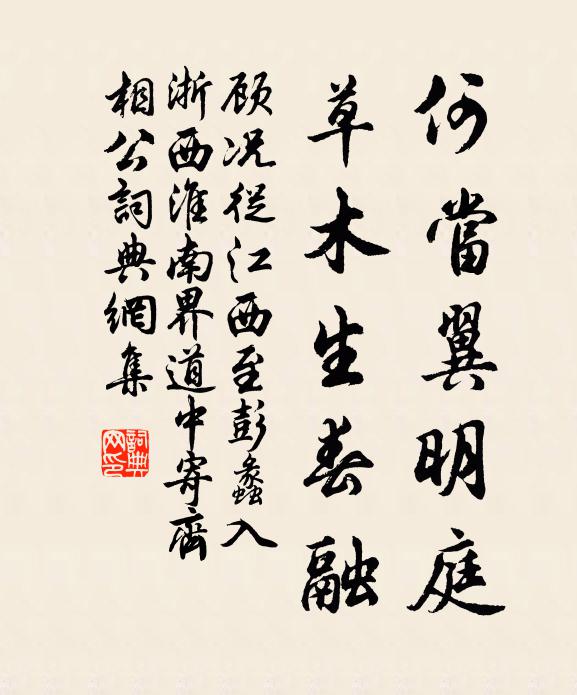 何當翼明庭
草木生春融
顾况從江西至彭蠡入
浙西淮南界道中寄齊
相公詞典網集
詞典網印